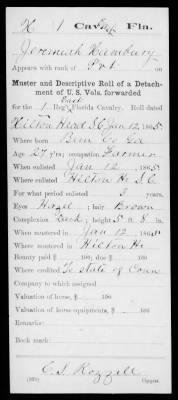 H 1 Cav. Fla.
East
Jeremiah
Appears with rank of Pvt on
Muster and Descriptive Roll of a Detach-
ment of U. S. Vols. forwarded
East
for the 1 Reg't Florida Cavalry. Roll dated
Hilton Head S.C. Jan 12, 1865.
Where born Ben Co Ga
Age 27 y'rs; occupation Farmer
When enlisted Jan 12, 1865
Where enlisted Hilton H. S.C.
For what period enlisted 3 years.
Eyes Hazel; hair Brown
Complexion Dark; height 5 ft. 8 in.
When mustered in Jan 12, 1865
Where mustered in Hilton H.
Bounty paid $ 100; due $ 100
Where credited To State of Conn
Company to which assigned
Valuation of horse, $ 100
Valuation of horse equipments, $ 100
Remarks:
Book mark:
Copyist.